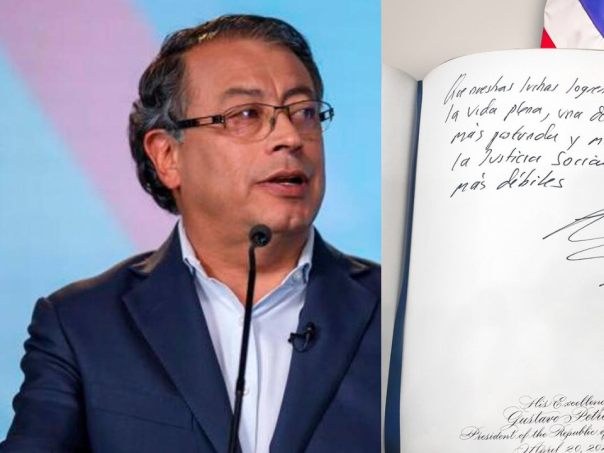 Que nuestras luchas logren
la vida plena, una
más profunda y
la Justicia Social
más débiles
His Excellen
Gustavo Petr
President of the Republic of
April 20, 20